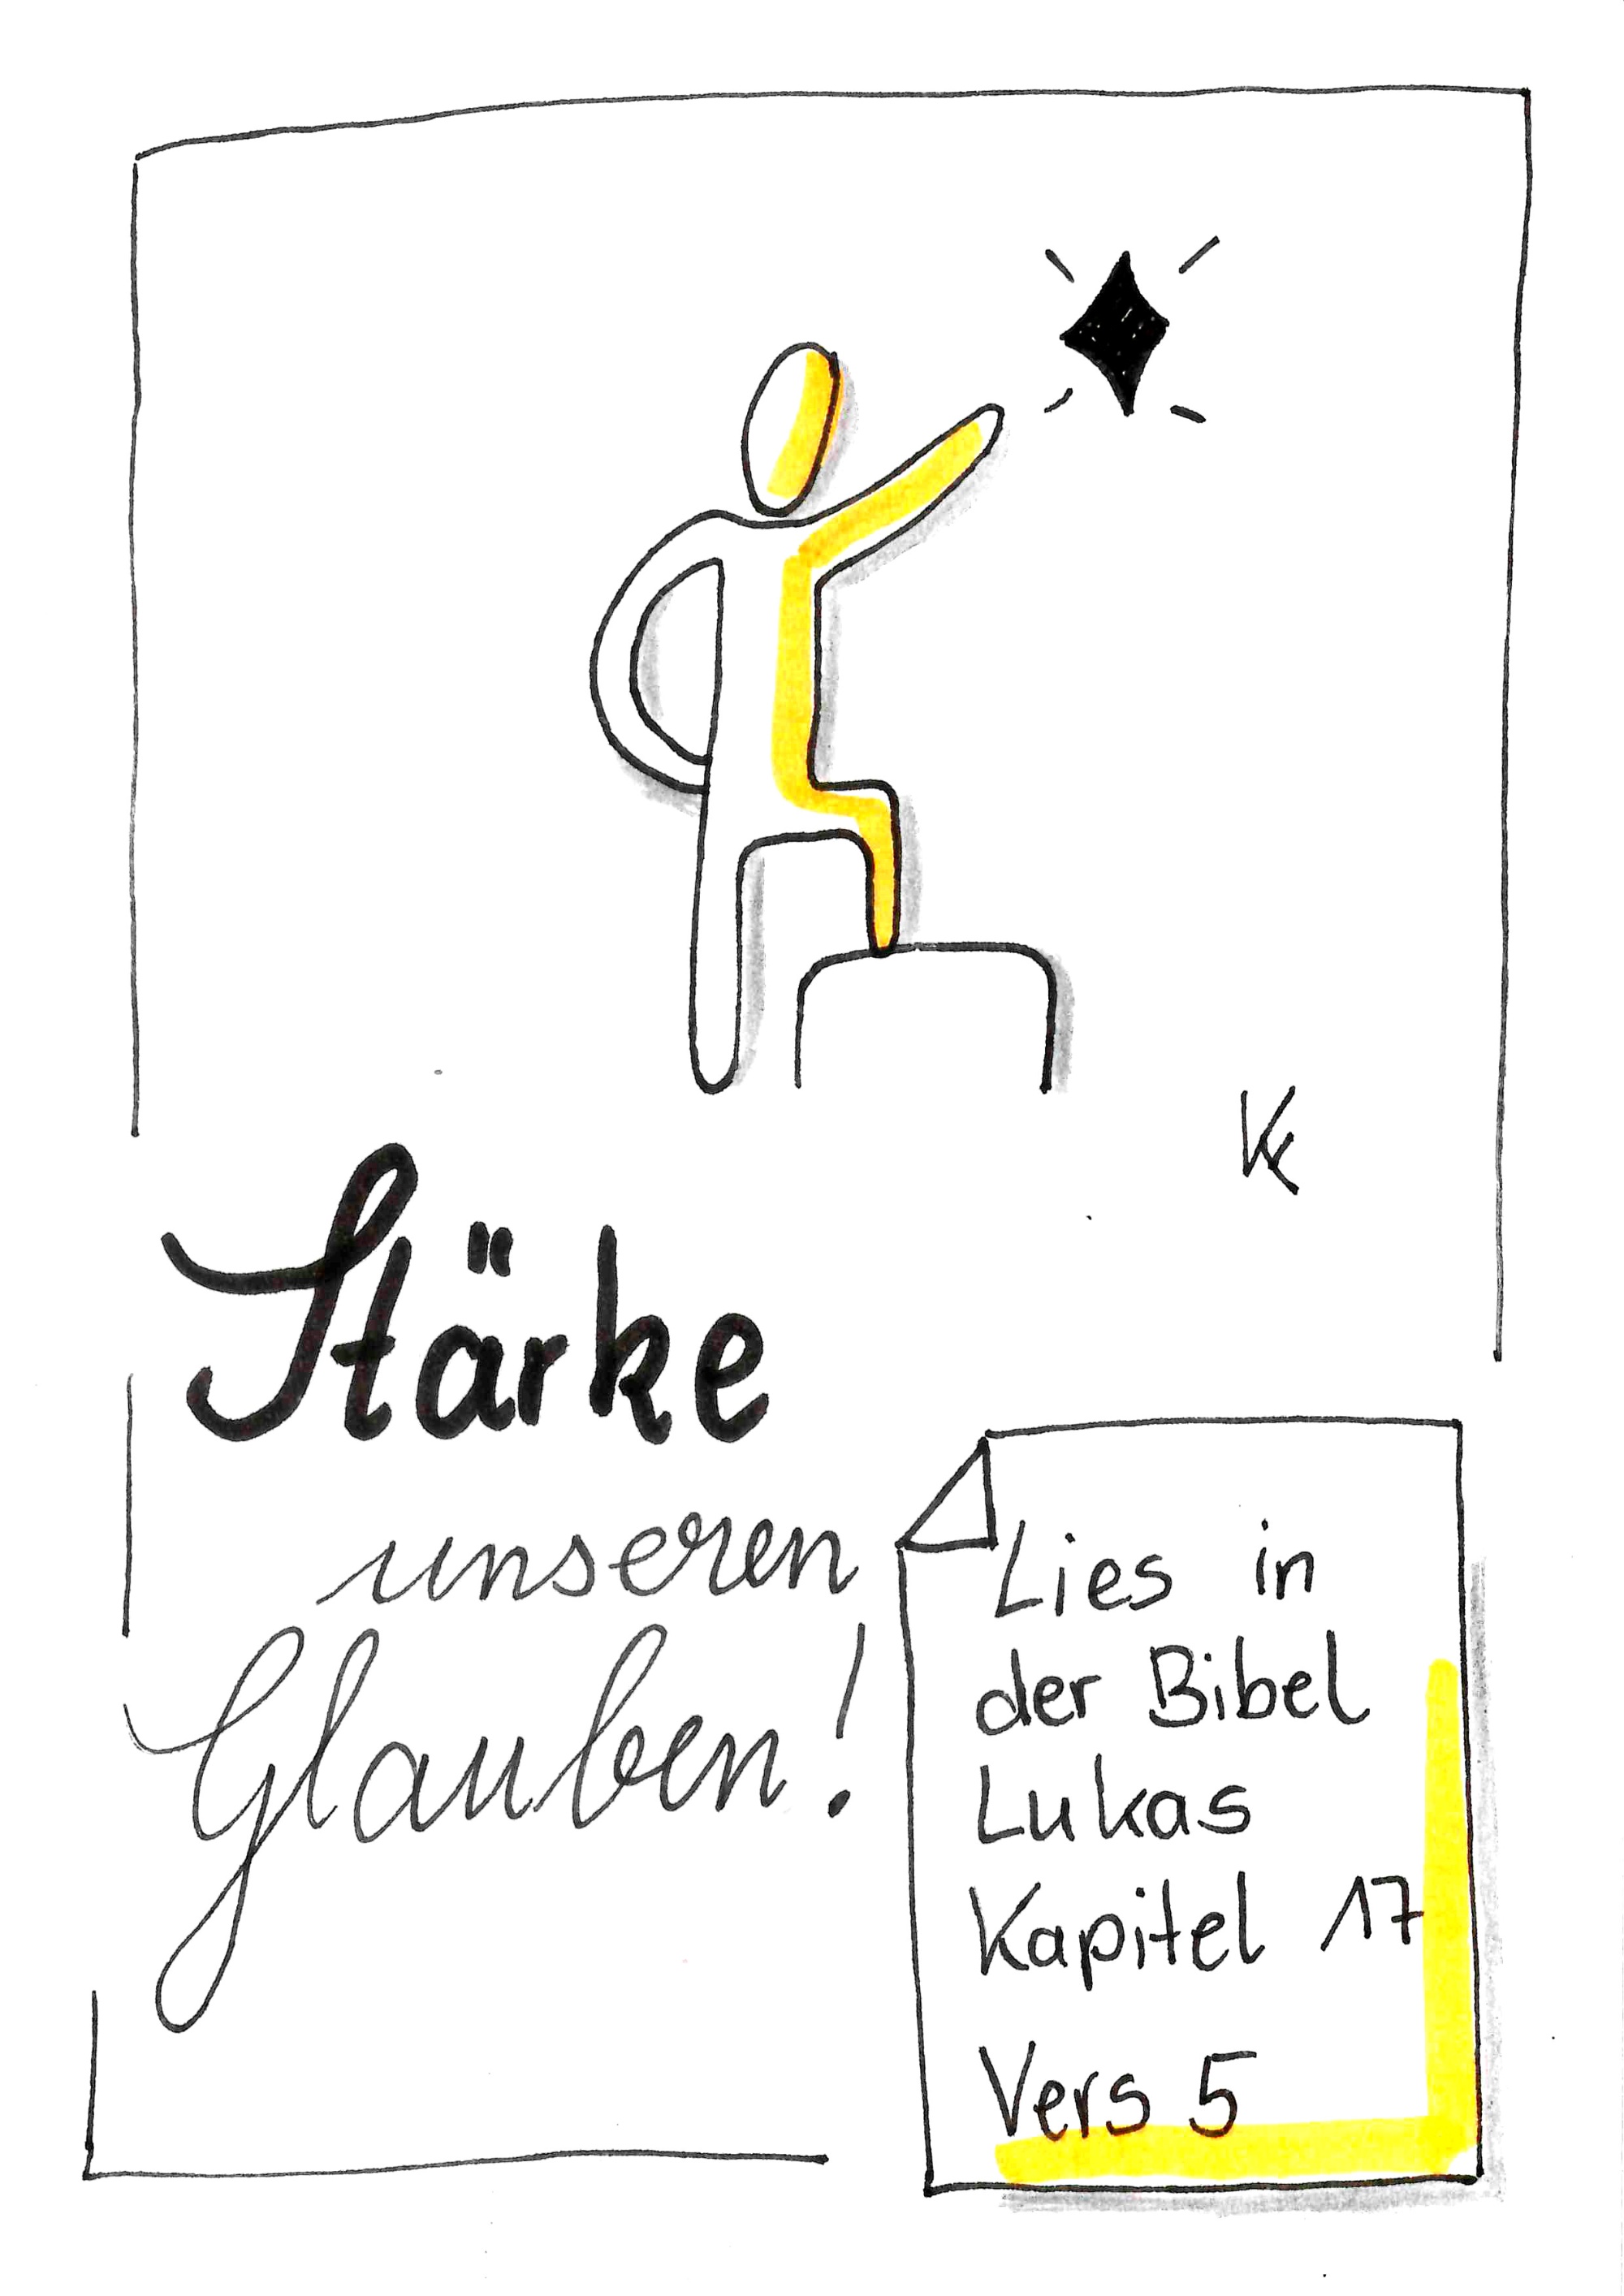 Stärke
unseren
Glauben!
Lies in
der Bibel
Lukas
Kapitel 17
Vers 5